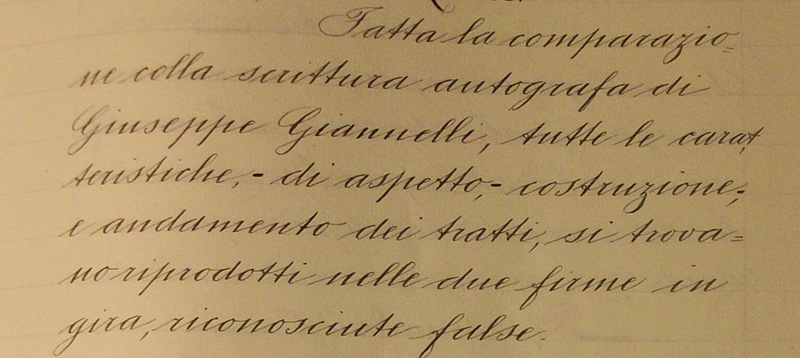 Fatta la comparazio=
ne colla scrittura autografa di
Giuseppe Giannelli, tutte le carat,
teristiche, - di aspetto, - costruzione, -
e andamento dei tratti, si trova=
no riprodotti nelle due firme in
gira, riconosciute false.